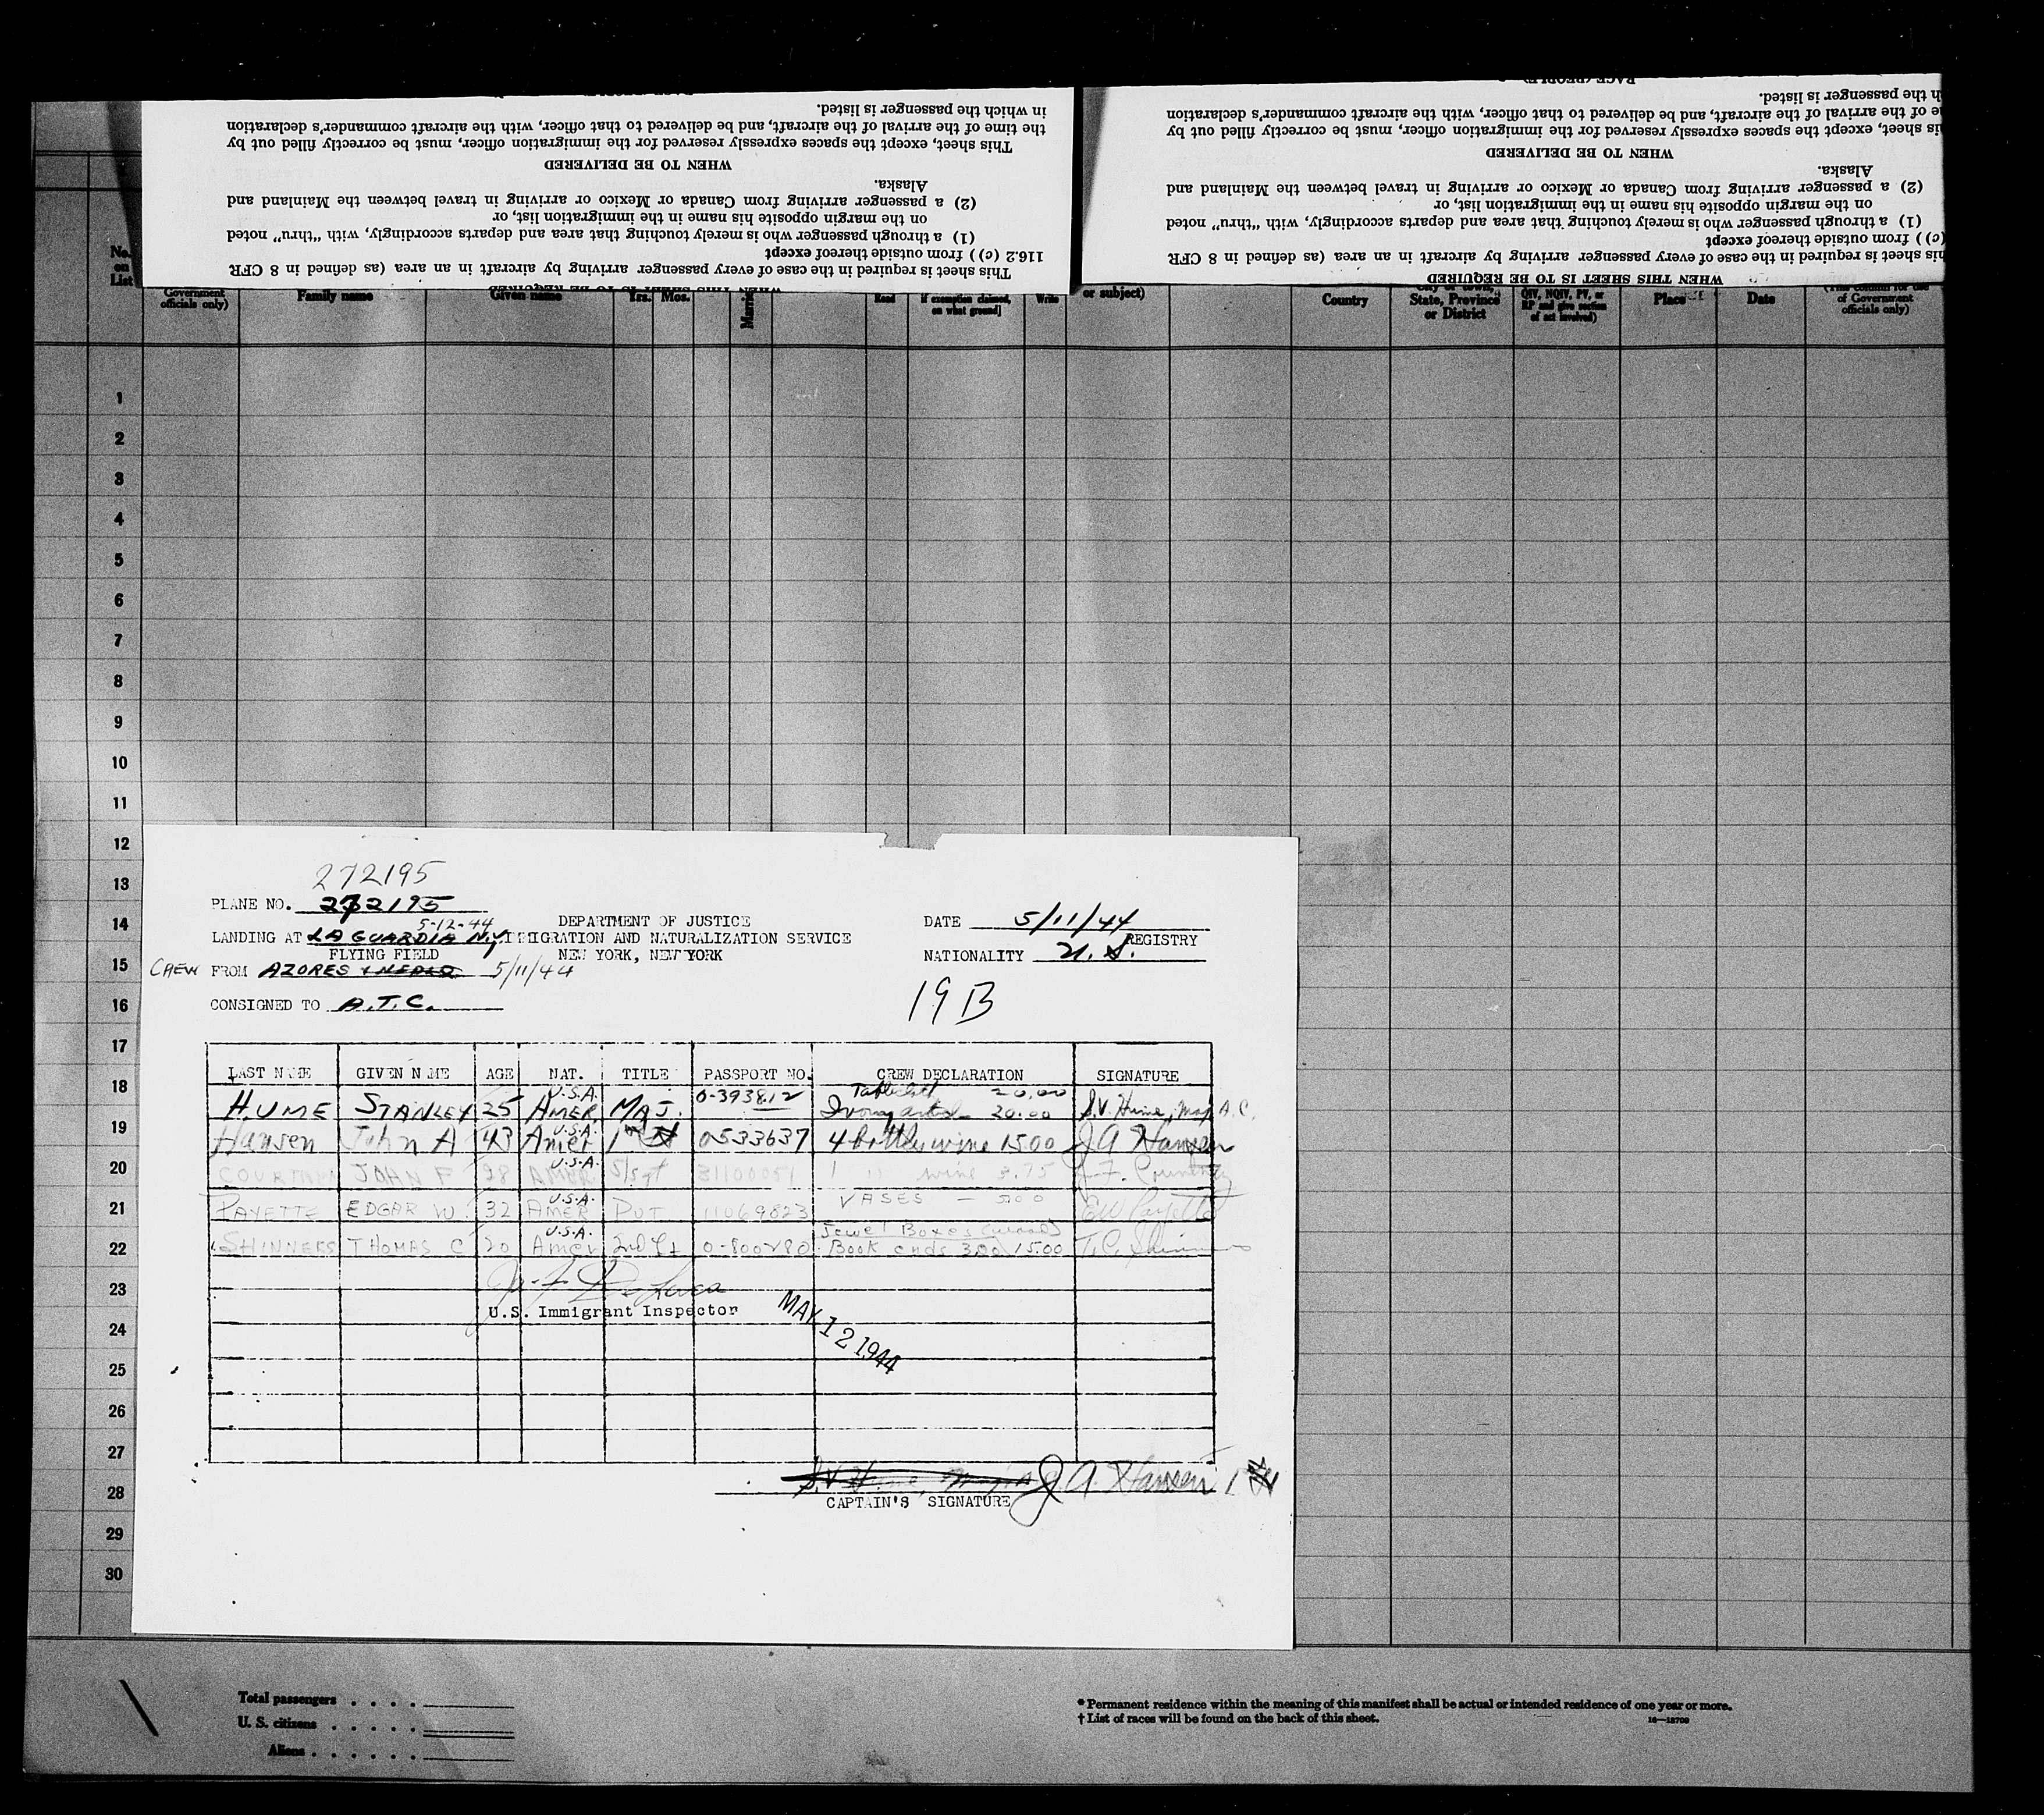 in which the passenger is listed.
the time of the arrival of the aircraft, and be delivered to that officer, with the aircraft commander's declaration
This sheet, except the spaces expressly reserved for the immigration officer, must be correctly filled out by
WHEN TO BE DELIVERED
Alaska.
(2) a passenger arriving from Canada or Mexico or arriving in travel between the Mainland and
on the margin opposite his name in the immigration list, or
(1) a through passenger who is merely touching that area and departs accordingly, with "thru" noted
116.2 (c)) from outside thereof except
This sheet is required in the case of every passenger arriving by aircraft in an area (as defined in 8 CFR
WHEN THIS SHEET IS TO BE REQUIRED
h the passenger is listed.
e of the arrival of the aircraft, and be delivered to that officer, with the aircraft commander's declaration
is sheet, except the spaces expressly reserved for the immigration officer, must be correctly filled out by
WHEN TO BE DELIVERED
Alaska.
(2) a passenger arriving from Canada or Mexico or arriving in travel between the Mainland and
on the margin opposite his name in the immigration list, or
(1) a through passenger who is merely touching that area and departs accordingly, with "thru" noted
(c)) from outside thereof except
his sheet is required in the case of every passenger arriving by aircraft in an area (as defined in 8 CFR
WHEN THIS SHEET IS TO BE REQUIRED
No. on List
Government officials only)
Family name
Given name
Yrs. Mos.
Read
if exemption claimed, on what ground]
Write
or subject)
Country
State, Province or District
QIV, NQIV, PV, or RP and give section of act involved)
Place
Date
of Government officials only)
1
2
3
4
5
6
7
8
9
10
11
12
13
14
15
16
17
18
19
20
21
22
23
24
25
26
27
28
29
30
272195
PLANE NO. 272195
5-12-44
LANDING AT LA GUARDIA N.Y.
FLYING FIELD
CREW FROM AZORES 5/11/44
CONSIGNED TO A.T.C.
DEPARTMENT OF JUSTICE
IMMIGRATION AND NATURALIZATION SERVICE
NEW YORK, NEW YORK
DATE 5/11/44
REGISTRY
NATIONALITY U.S.
19 B
LAST NAME GIVEN NAME AGE NAT. TITLE PASSPORT NO. CREW DECLARATION SIGNATURE
HUME STANLEY 25 U.S.A. AMER. MAJ. 0-393812 20.00 Ivory 20.00 S.V. Hume, Maj. A.C.
Hansen John A 43 U.S.A. Amer 1st Lt 0533637 4 bottles wine 15.00 J A Hansen
JOHN F 28 U.S.A. AMER S/Sgt 31100051 1 " wine 3.75 J. F.
PAYETTE EDGAR W. 32 U.S.A. AMER PVT 11069823 VASES — 5.00 EW Payette
SHINNERS THOMAS C 20 U.S.A. Amer 2nd Lt 0-800280 Jewel Boxes (wood) Book ends 3.00 15.00 T.C. Shinners
U.S. Immigrant Inspector
MAY 12 1944
J A Hansen 1st Lt
CAPTAIN'S SIGNATURE
Total passengers . . . .
U. S. citizens . . . . .
Aliens . . . . . .
* Permanent residence within the meaning of this manifest shall be actual or intended residence of one year or more.
† List of races will be found on the back of this sheet.